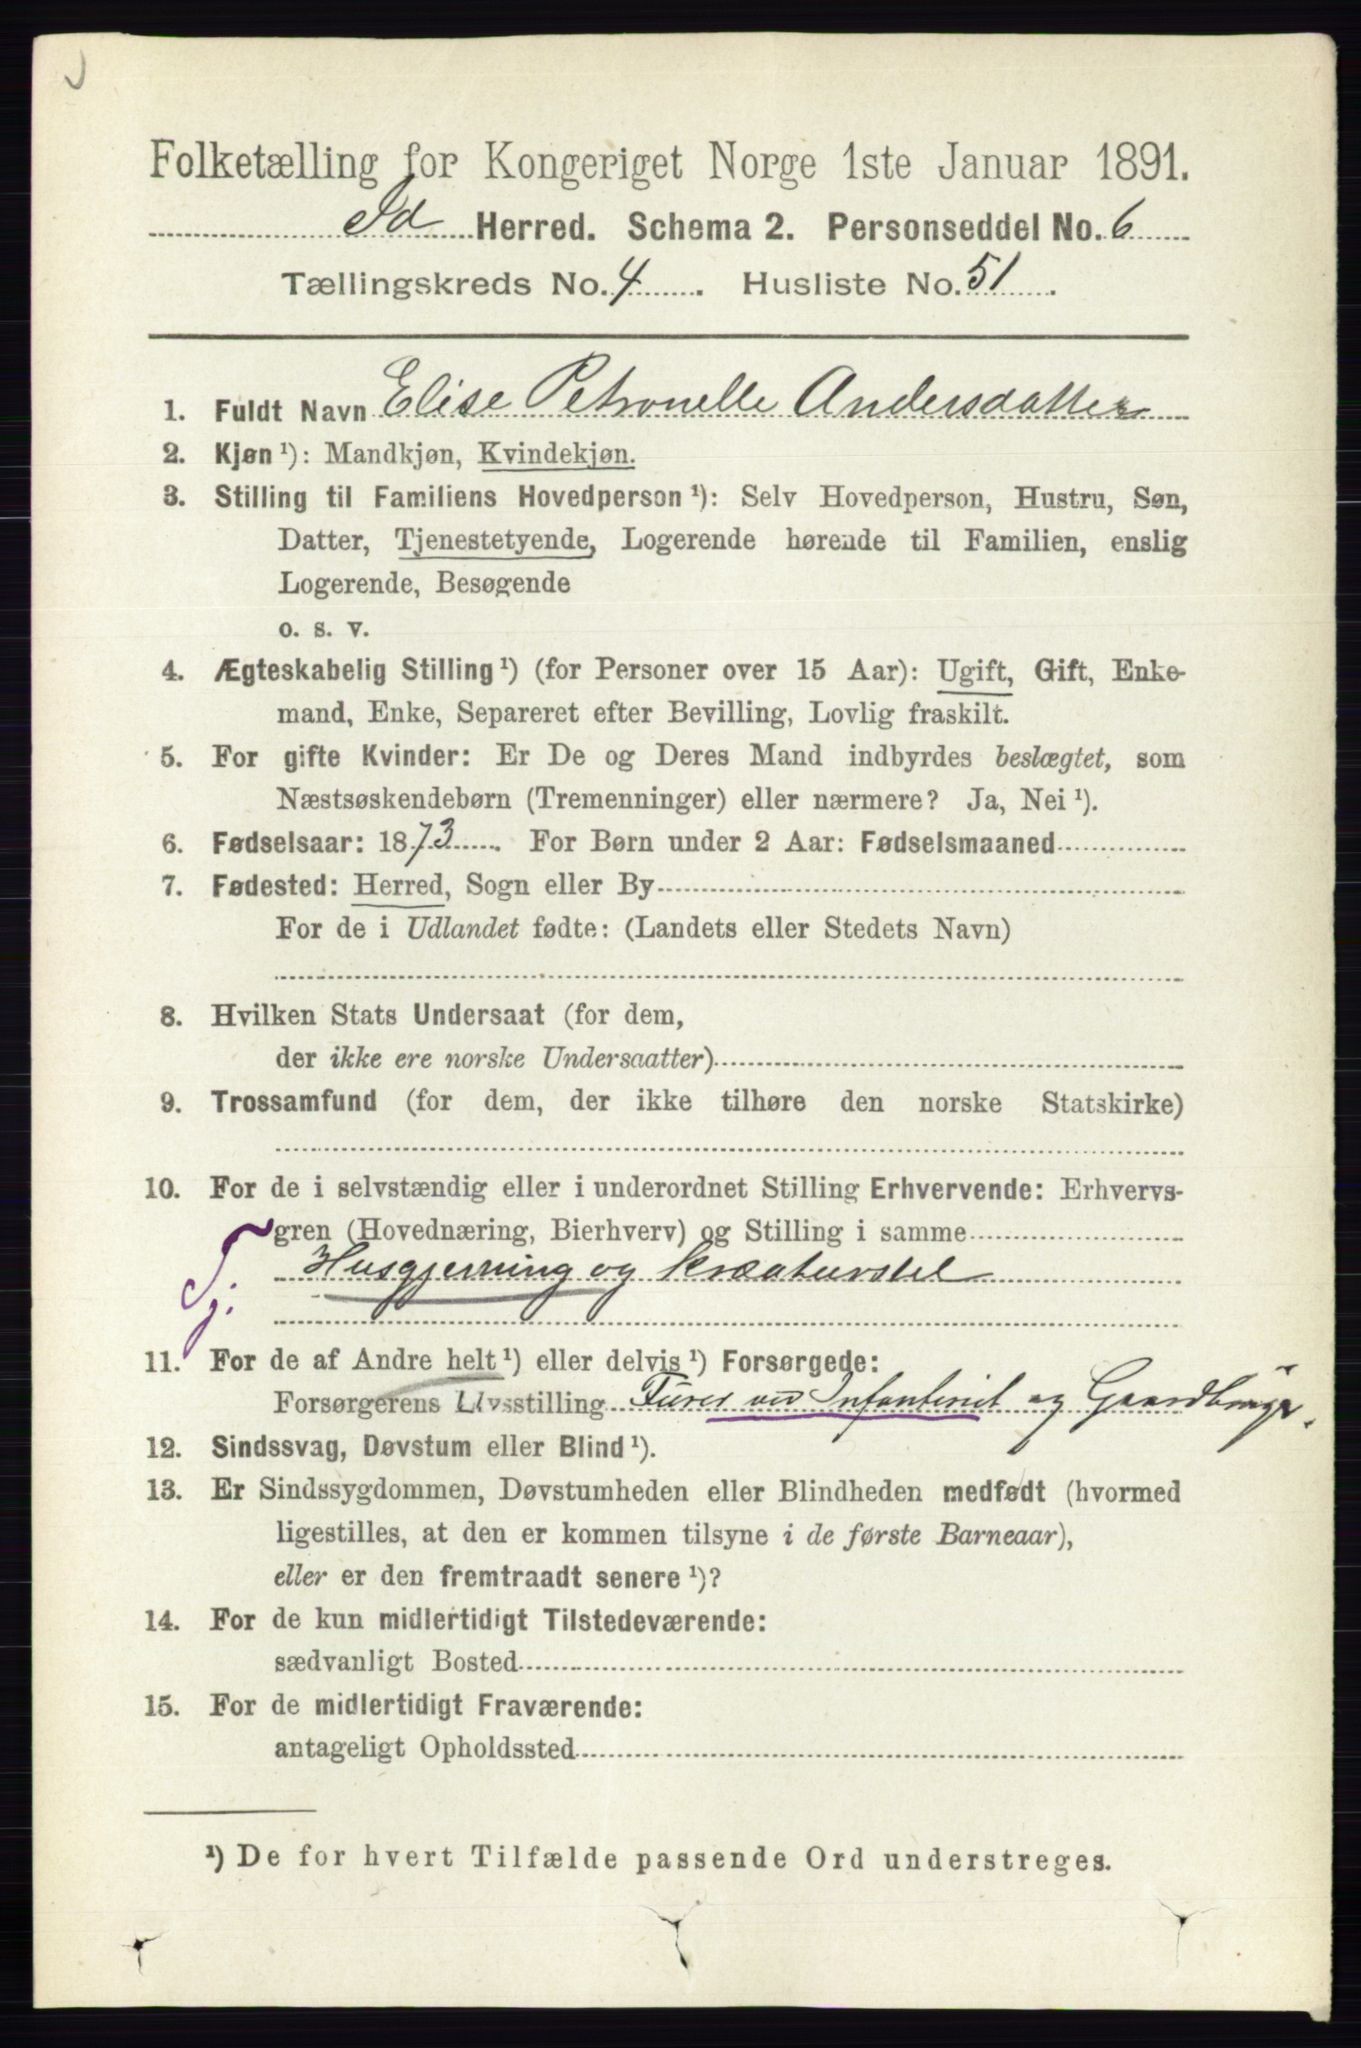 Folketælling for Kongeriget Norge 1ste Januar 1891.
Id Herred. Schema 2. Personseddel No. 6
Tællingskreds No. 4. Husliste No. 51.
1. Fuldt Navn Elise Petronelle Andersdatter
2. Kjøn ¹): Mandkjøn, Kvindekjøn.
3. Stilling til Familiens Hovedperson ¹): Selv Hovedperson, Hustru, Søn,
Datter, Tjenestetyende, Logerende hørende til Familien, enslig
Logerende, Besøgende
o. s. v.
4. Ægteskabelig Stilling ¹) (for Personer over 15 Aar): Ugift, Gift, Enke-
mand, Enke, Separeret efter Bevilling, Lovlig fraskilt.
5. For gifte Kvinder: Er De og Deres Mand indbyrdes beslægtet, som
Næstsøskendebørn (Tremenninger) eller nærmere? Ja, Nei ¹).
6. Fødselsaar: 1873. For Børn under 2 Aar: Fødselsmaaned
7. Fødested: Herred, Sogn eller By
For de i Udlandet fødte: (Landets eller Stedets Navn)
8. Hvilken Stats Undersaat (for dem,
der ikke ere norske Undersaatter)
9. Trossamfund (for dem, der ikke tilhøre den norske Statskirke)
10. For de i selvstændig eller i underordnet Stilling Erhvervende: Erhvervs-
gren (Hovednæring, Bierhverv) og Stilling i samme
Husgjerning og kreaturstel
11. For de af Andre helt ¹) eller delvis ¹) Forsørgede:
Forsørgerens Livsstilling Furer ved Infanteriet og Gaardbruger.
12. Sindssvag, Døvstum eller Blind ¹).
13. Er Sindssygdommen, Døvstumheden eller Blindheden medfødt (hvormed
ligestilles, at den er kommen tilsyne i de første Barneaar),
eller er den fremtraadt senere ¹)?
14. For de kun midlertidigt Tilstedeværende:
sædvanligt Bosted
15. For de midlertidigt Fraværende:
antageligt Opholdssted
¹) De for hvert Tilfælde passende Ord understreges.